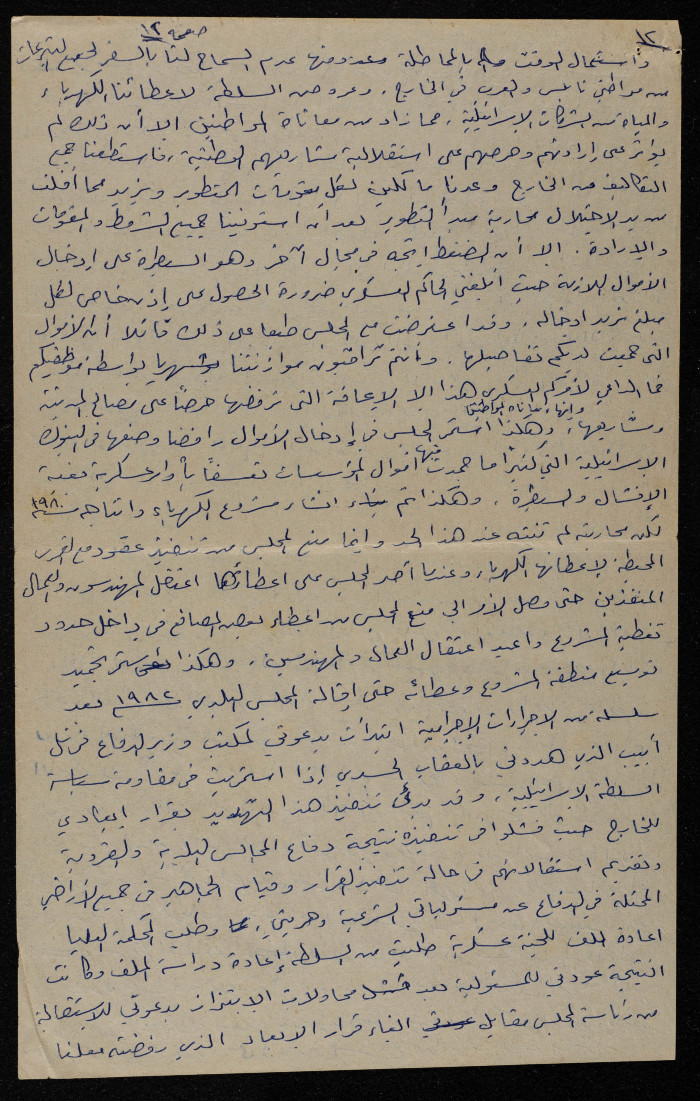 ١٢
صفحه ١٢
واستعمال الوقت بالمماطلة وعددونها عدم السماح لنا بالسفر لجميع التبرعات
من مواطني نابلس والعرب في الخارج. وعروض السلطة لاعطائنا الكهرباء
والمياه من الشركات الإسرائيلية، مما زاد من معاناة المواطنين الا أن ذلك لم
يؤثر على إرادتهم وحرصهم على استقلالية مشاريعهم الوطنية، فاستطعنا جمع
التكاليف من الخارج وعدنا لكل مقومات التطور ونزيد مما أفلت
من يد الاحتلال محاربة مبدأ التطوير بعد أن استوفينا جميع الشروط والمقومات
والإرادة. الا أن الضغط اتجه في مجال آخر وهو السيطرة على إدخال
الأموال اللازمة حيث أبلغني الحاكم العسكري ضرورة الحصول على إذن خاص لكل
مبلغ نريد ادخاله. وقد اعترضت مع المجلس طبعا على ذلك قائلا أن الأموال
التي جمعت لديكم تفاصيلها. وأنتم تراقبون موازنتنا شهريا بواسطة موظفيكم
فما الداعي لأمركم العسكري هذا إلا الاعاقة التي نرفضها حرصاً على مصالح المدينة
وإنهاء معاناة المواطنين
ومشاريعها، وهكذا استمر المجلس في إدخال الأموال رافضا وضعها في البنوك
الإسرائيلية التي كثيرًا ما جمدت فيها أموال المؤسسات تعسفًا بأوامر عسكرية بغية
الإفشال والسيطرة. وهكذا تم انشاء مشروع الكهرباء وانتاجه سنة ١٩٨٠
لكن محاربته لم تنته عند هذا الحد وإنما منع المجلس من تنفيذ عقود مع القرى
المحيطة لإعطائها الكهرباء وعندما أصر المجلس على اعطائها اعتقل المهندسون والعمال
المنفذين حتى وصل الأمر الى منع المجلس من اعطاء بعض المصانع في داخل حدود
تغطية المشروع واعيد اعتقال العمال والمهندسين. وهكذا استمر تجميد
توسيع منطقة المشروع وعطائه حتى إقالة المجلس البلدي ١٩٨٢ بعد
سلسلة من الاجراءات الإجرامية ابتدأت بدعوتي لمكتب وزير الدفاع في تل
أبيب الذي هددني بالعقاب الجسدي إذا استمريت في مقاومة سياسة
السلطة الإسرائيلية. وقد بدئ تنفيذ هذا التهديد بقرار إبعادي
للخارج حيث فشلوا في تنفيذه نتيجة دفاع المجالس البلدية والقروية
وتقديم استقالاتهم في حالة تنفيذ القرار وقيام الجماهير في جميع الأراضي
المحتلة في الدفاع عن مسئولياتي الشرعية وحريتي. وطلب المحكمة العليا
اعادة الملف للجنة عسكرية طلبت من السلطة إعادة دراسة الملف وكانت
النتيجة عودتي للمسئولية بعد فشل محاولات الابتزاز بدعوتي للاستقالة
من رئاسة المجلس مقابل الغاء قرار الابعاد الذي رفضته معلنا